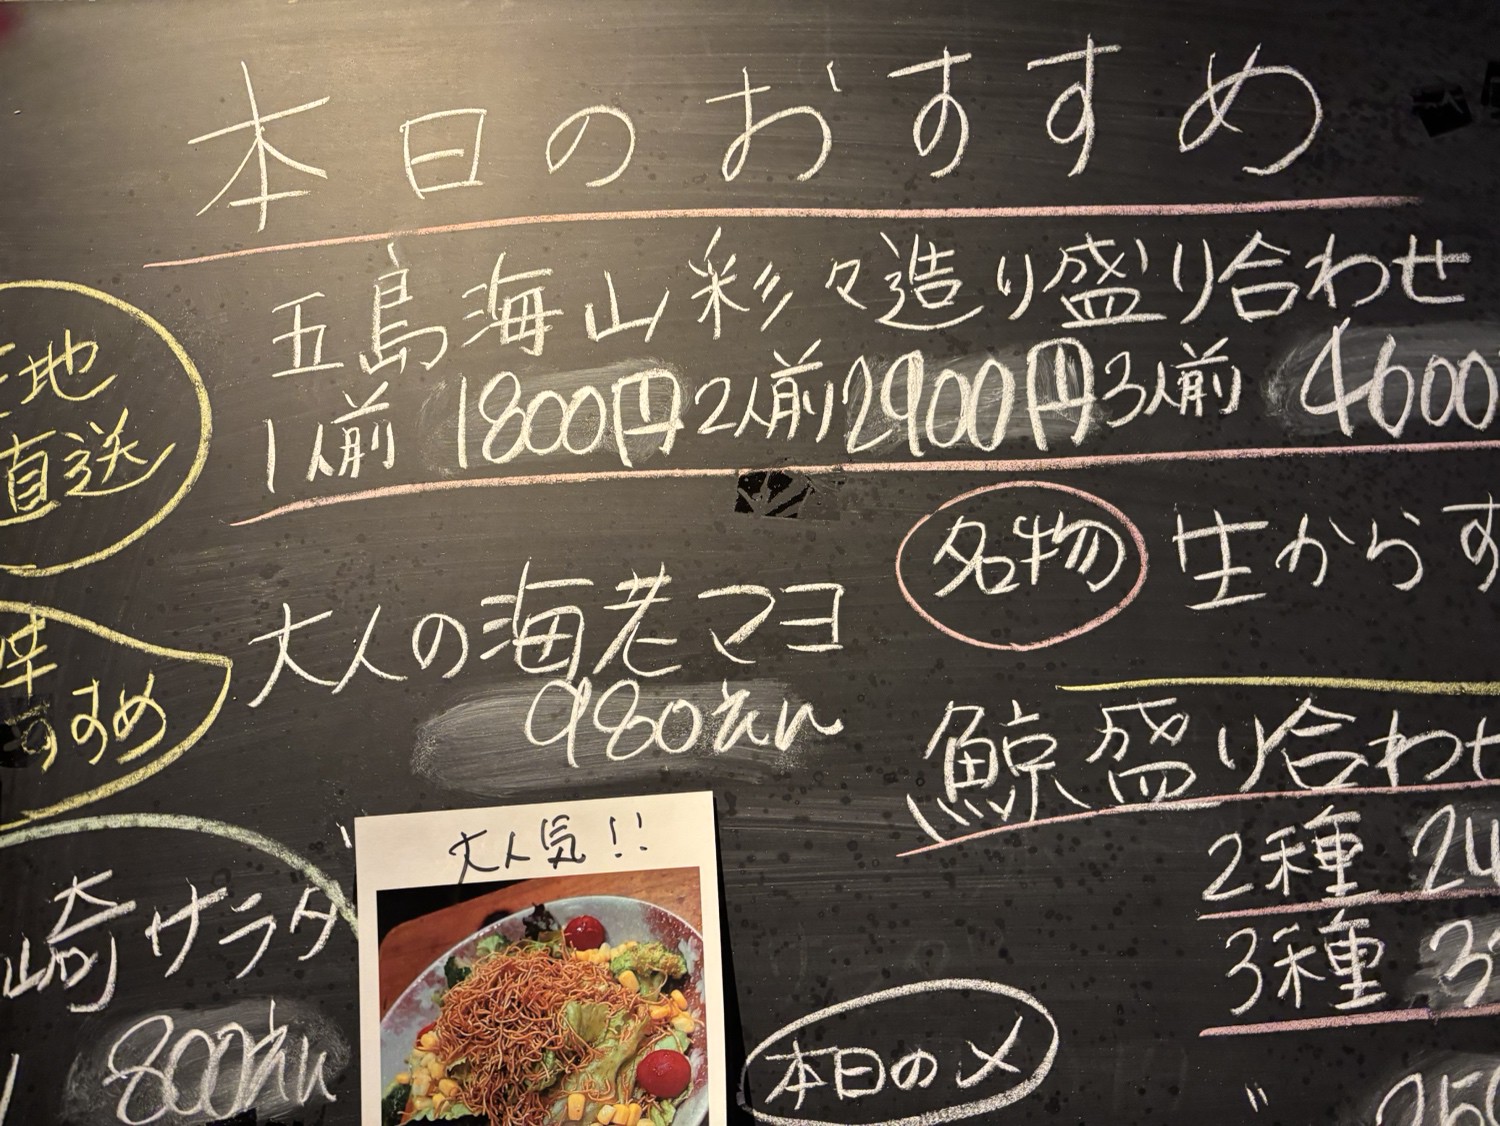 本日のおすすめ
五島海山彩々造り盛り合わせ
1人前 1800円 2人前 2900円 3人前 4600
地
直送
名物 生からす
大人の海老マヨ
980えん
すめ
鯨盛り合わせ
2種 24
3種 3
大人気!!
崎サラダ
800えん
本日の〆
250